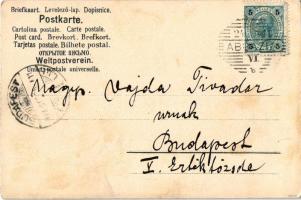 Briefkaart. Levelező-lap. Dopisnice.
Postkarte.
Cartolina postale. Carte postale.
Post card. Brevkort. Brefkort.
Tarjetas postale. Bilhete postal.
ОТКРЫТОЕ ПИСЬМО.
Weltpostverein.
Union postale universelle.
5 5
BUDAPEST
Nagys. Vajda Tivadar
urnak
Budapest
V. Értéktőzsde